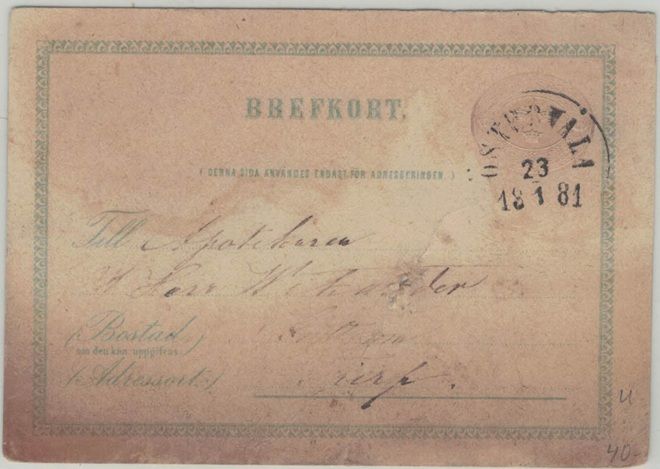 BREFKORT.
ÖSTERVALA
23
18 1 81
( DENNA SIDA ANVÄNDES ENDAST FÖR ADRESSERINGEN. )
Till Apotekaren
Herr
(Bostad,
om den kan uppgifvas
(Adressort:)
Tierp.
U
40-